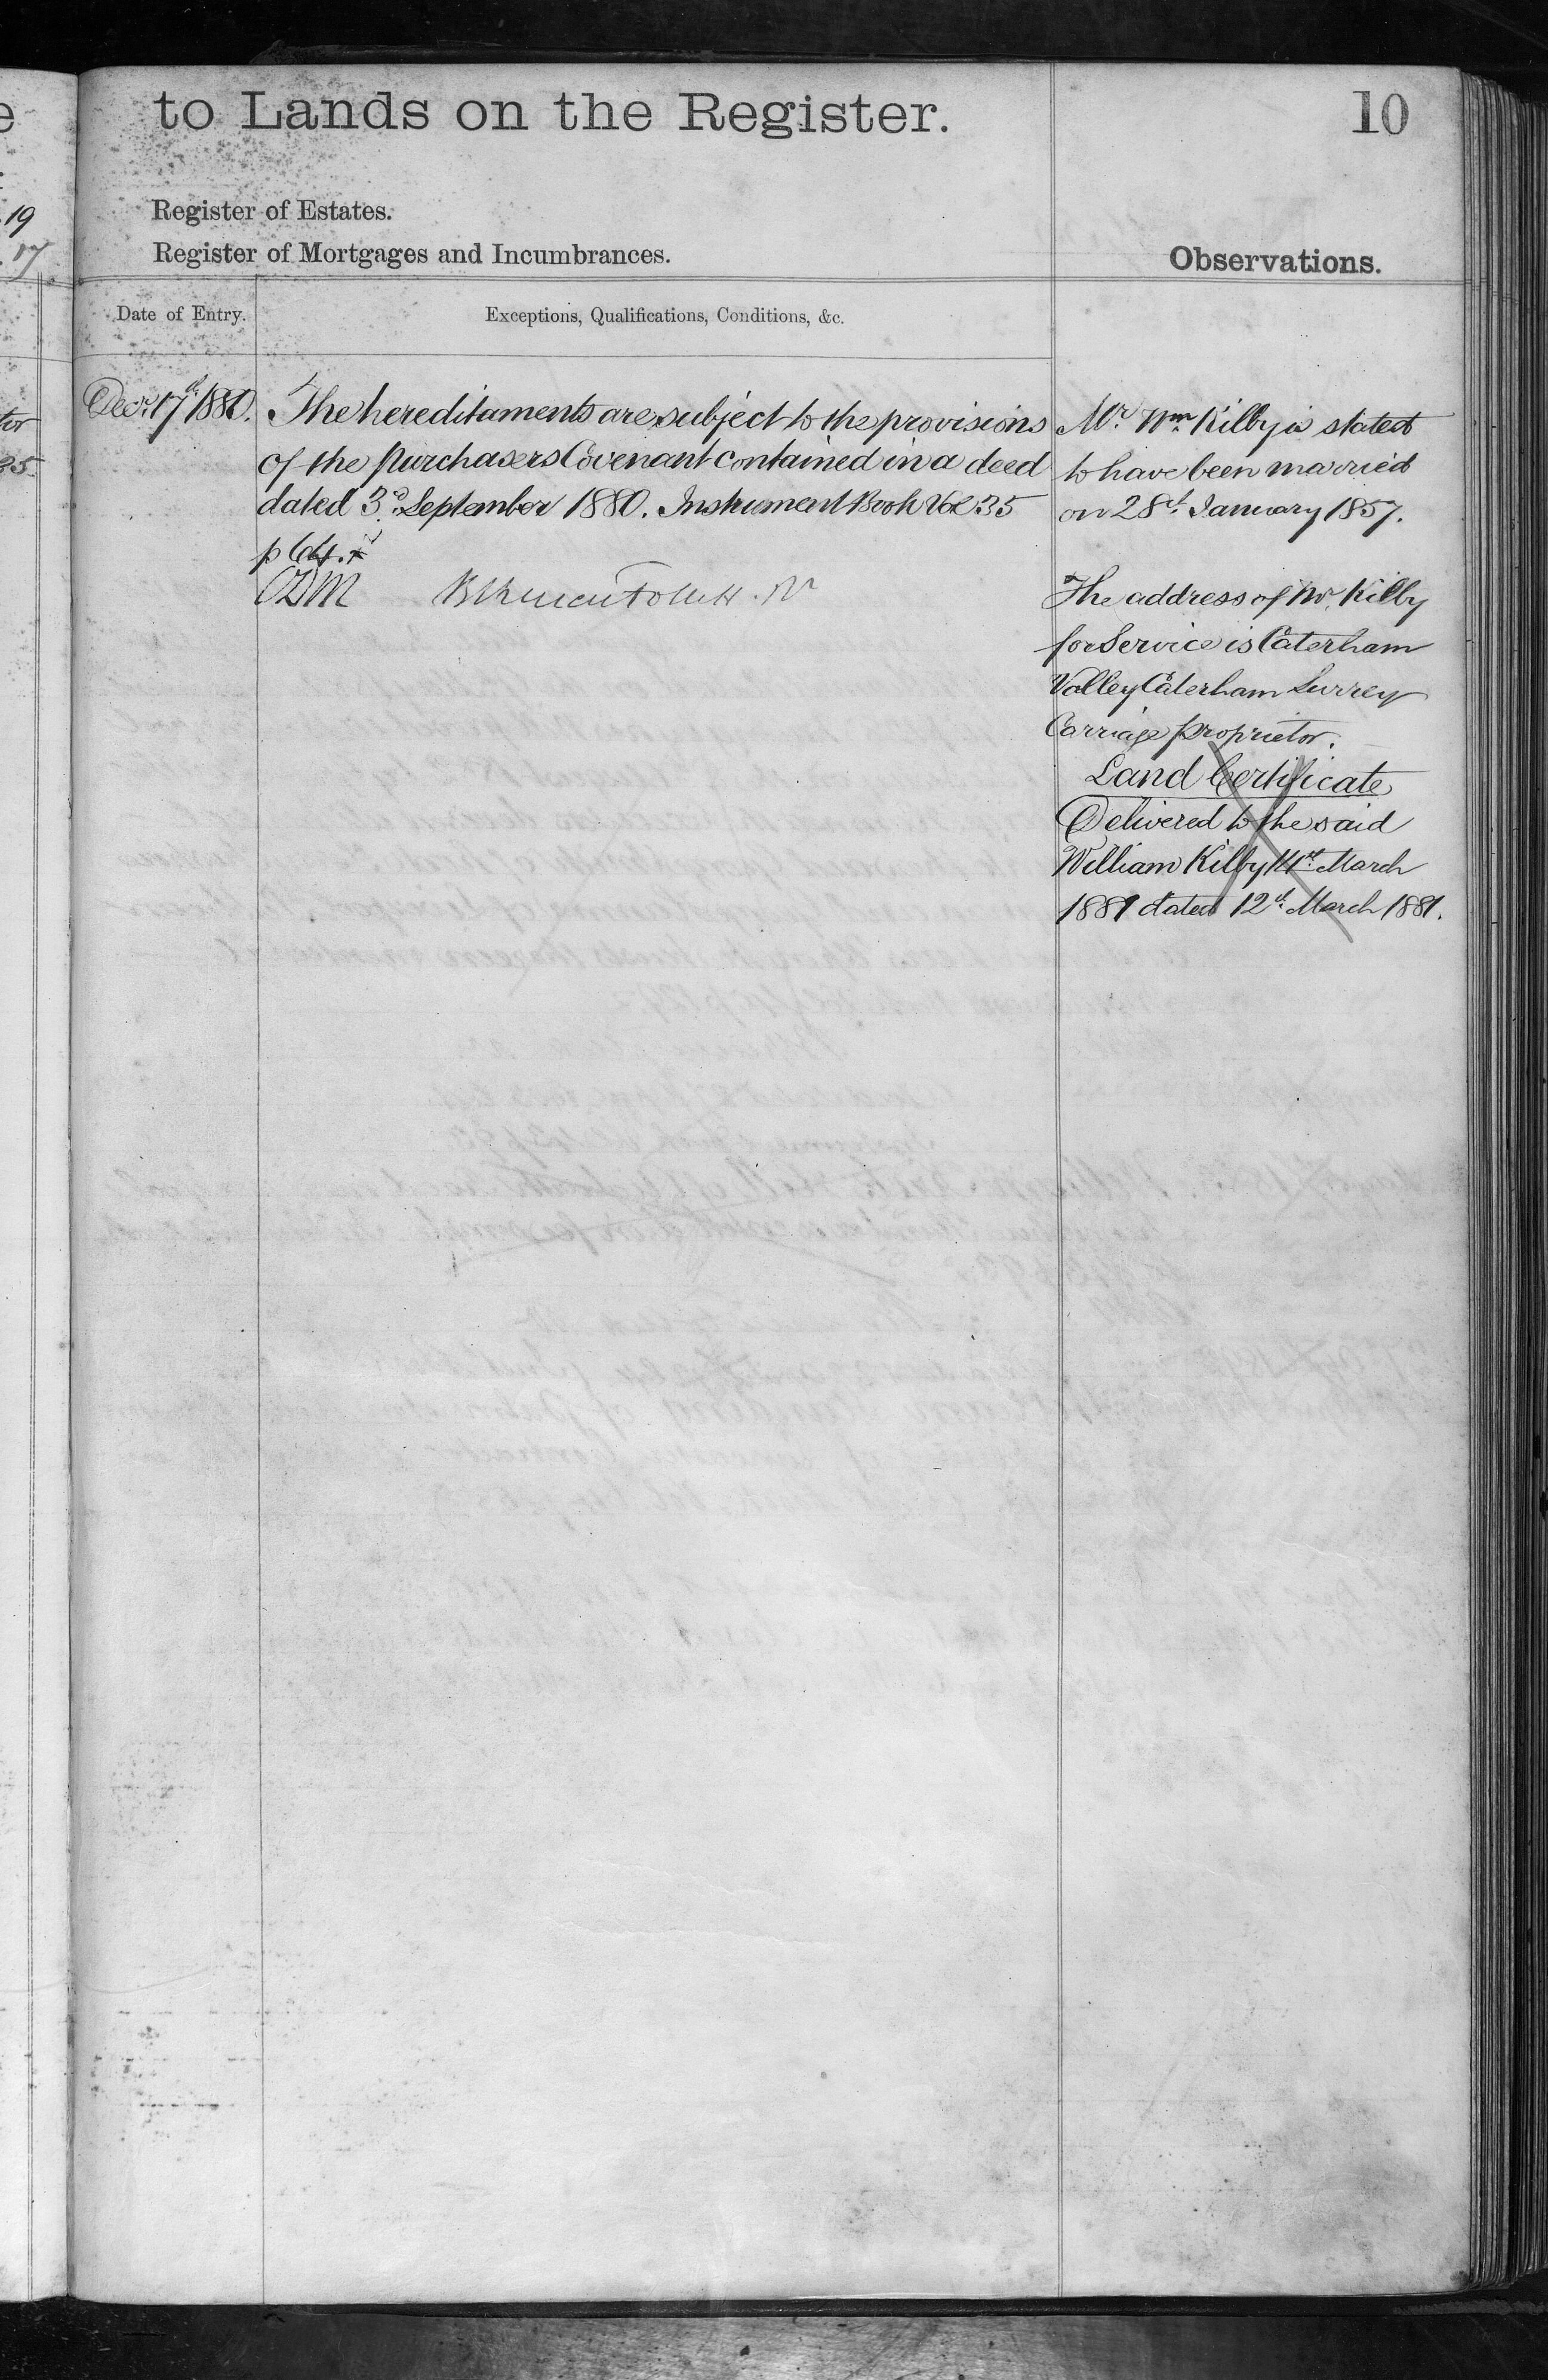 to Lands on the Register.
10
Register of Estates.
Register of Mortgages and Incumbrances.
Observations.
Date of Entry.
Exceptions, Qualifications, Conditions, &c.
Decr. 17th 1880.
The hereditaments are subject to the provisions
of the purchasers Covenant contained in a deed
dated 3d. September 1880. Instrument Book Vol 35
p 64.
Mr. Wm. Kilby is stated
to have been married
on 28th. January 1857.
The address of Mr. Kilby
for Service is Caterham
Valley Caterham Surrey
Carriage proprietor.
Land Certificate
Delivered to the said
William Kilby 14th. March
1881 dated 12th. March 1881.
19
17
tor
35.